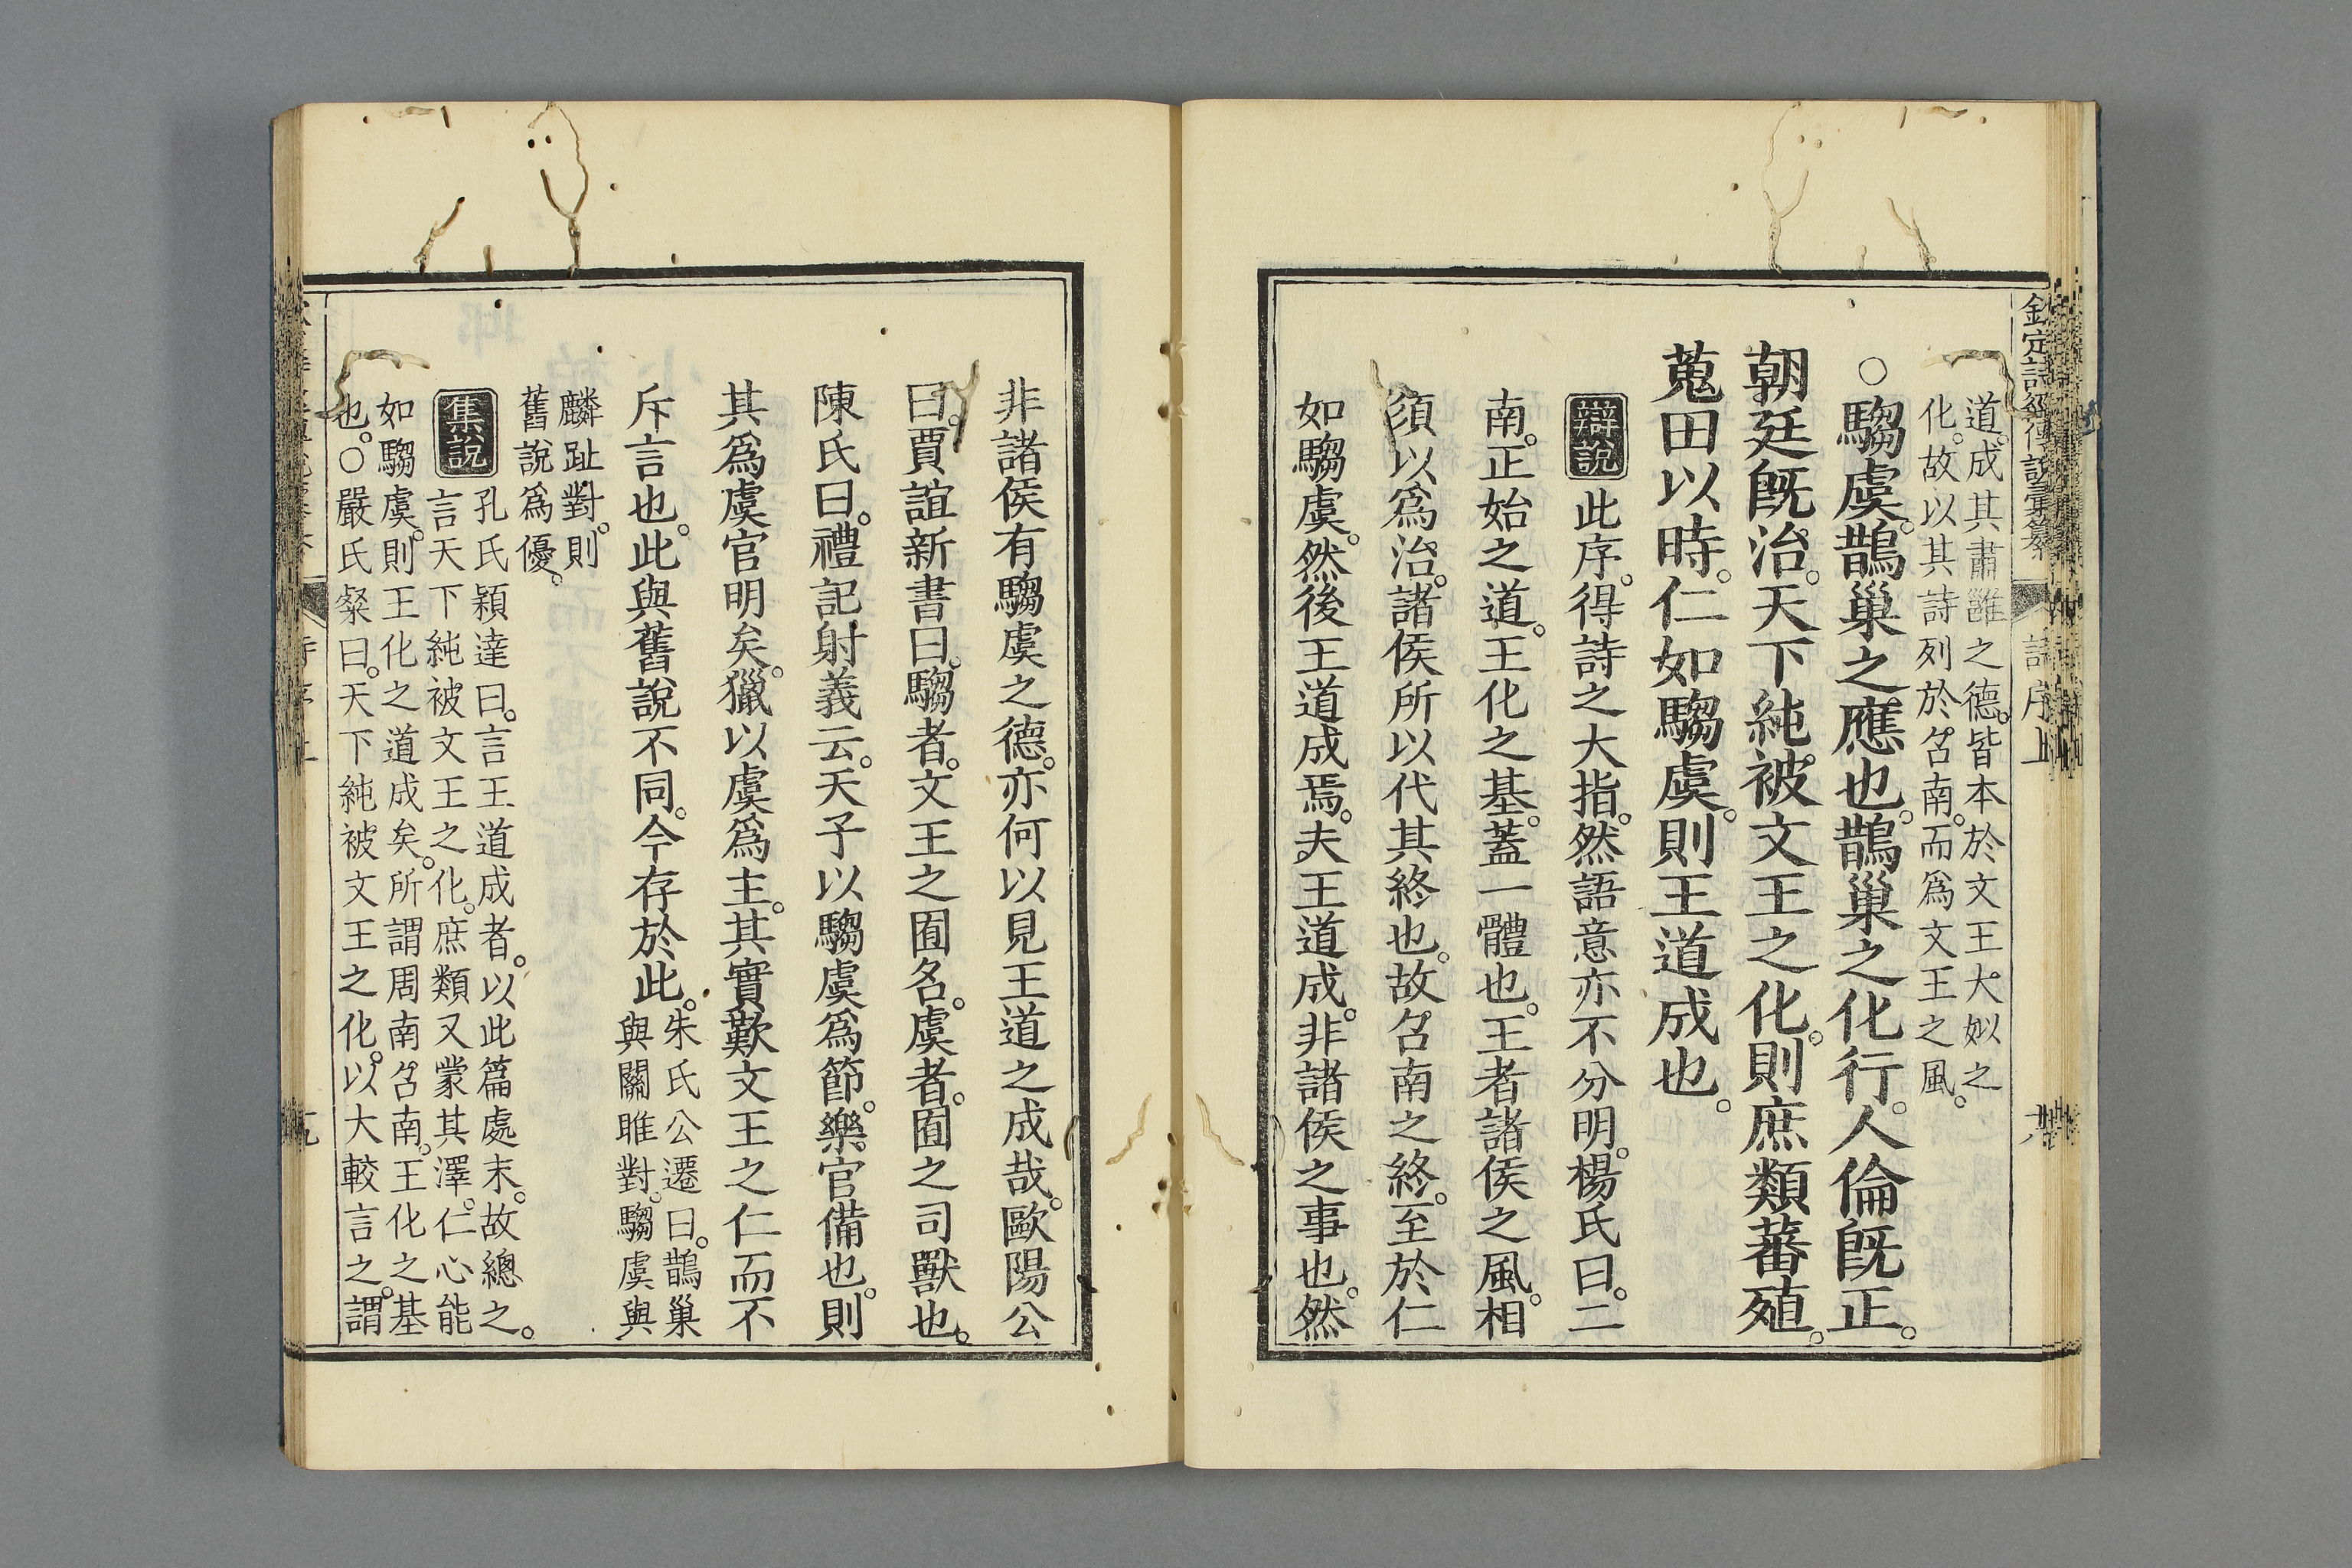 欽定詩經傳說彙纂
詩序上
道。成其肅雝之德。皆本於文王大姒之
化。故以其詩列於召南。而爲文王之風。
○騶虞。鵲巢之應也。鵲巢之化行。人倫既正。
朝廷既治。天下純被文王之化。則庶類蕃殖。
蒐田以時。仁如騶虞。則王道成也。
辯說
此序。得詩之大指。然語意亦不分明。楊氏曰。二
南。正始之道。王化之基。蓋一體也。王者諸侯之風。相
須以爲治。諸侯所以代其終也。故召南之終。至於仁
如騶虞。然後王道成焉。夫王道成。非諸侯之事也。然
非諸侯有騶虞之德。亦何以見王道之成哉。歐陽公
曰。賈誼新書曰。騶者。文王之囿名。虞者。囿之司獸也。
陳氏曰。禮記射義云。天子以騶虞爲節。樂官備也。則
其爲虞官明矣。獵以虞爲主。其實歎文王之仁而不
斥言也。此與舊說不同。今存於此。
朱氏公遷曰。鵲巢
與關雎對。騶虞與
麟趾對。則
舊說爲優。
集說
孔氏穎達曰。言王道成者。以此篇處末。故總之。
言天下純被文王之化。庶類又蒙其澤。仁心能
如騶虞。則王化之道成矣。所謂周南召南。王化之基
也。○嚴氏粲曰。天下純被文王之化。以大較言之。謂